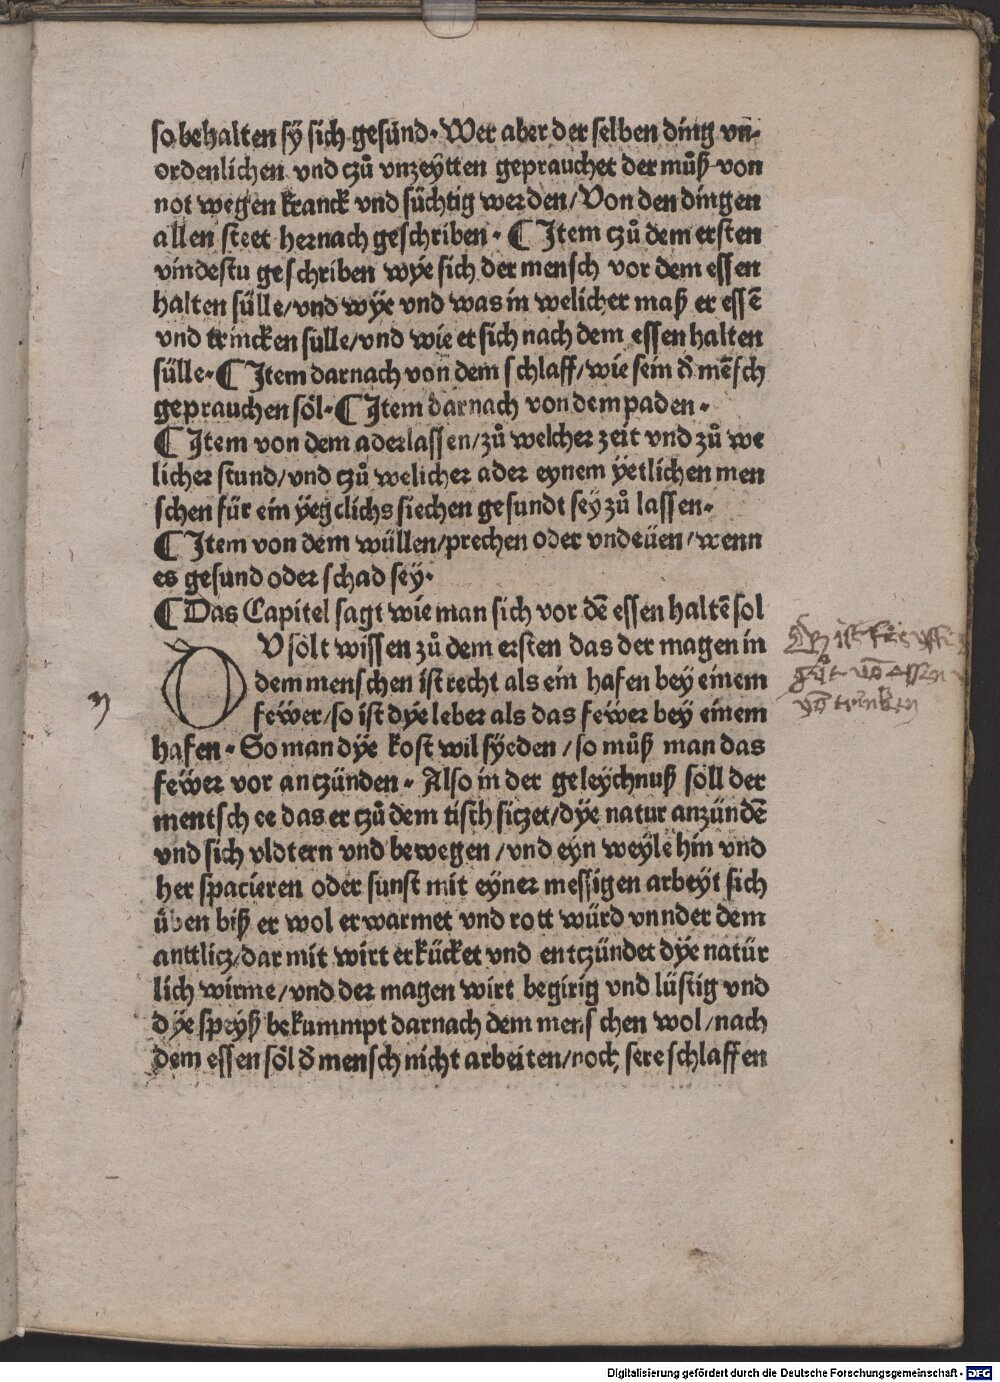 so behalten sÿ sich gesünd· Wer aber der selben ding vn-
ordenlichen vnd czů vnzeÿtten geprauchet der můß von
not wegen kranck vnd süchtig werden/ Von den dingen
allen steet hernach geschriben· ¶ Item czů dem ersten
vindestu geschriben wÿe sich der mensch vor dem essen
halten sülle/vnd wÿe vnd was in welicher maß er essē
vnd trincken sulle/vnd wie er sich nach dem essen halten
sülle·¶ Item darnach von dem schlaff/wie sein ð mēsch
geprauchen söl·¶ Item darnach von dem paden·
¶ Item von dem aderlassen/zů welcher zeit vnd zů we
licher stund/vnd czů welicher ader eynem ÿetlichen men
schen für ein ÿegclichs siechen gesundt seÿ zů lassen·
¶ Item von dem wüllen/prechen oder vndeüen/wenn
es gesund oder schad seÿ·
¶ Das Capitel sagt wie man sich vor dē essen haltē sol
DV solt wissen zů dem ersten das der magen in
dem menschen ist recht als ein hafen bey einem
feẅer/so ist dÿe leber als das feẅer bey einem
hafen· So man dÿe kost wil sÿeden/so můß man das
feẅer vor anczünden· Also in der geleychnuß söll der
mentsch ee das er czů dem tisch siczet/dÿe natur anzündē
vnd sich vldtern vnd bewegen/vnd eyn weÿle hin vnd
her spacieren oder sunst mit eÿner messigen arbeÿt sich
üben biß er wol erwarmet vnd rott würd vnnder dem
anttlicz/dar mit wirt erkücket vnd entczündet dÿe natür
lich wirme/vnd der magen wirt begirig vnd lüstig vnd
dÿe speÿß bekummpt darnach dem menschen wol/nach
dem essen söl ð mensch nicht arbeiten/noch sere schlaffen
gůt vō essen
vō trinken
Digitalisierung gefördert durch die Deutsche Forschungsgemeinschaft - DFG